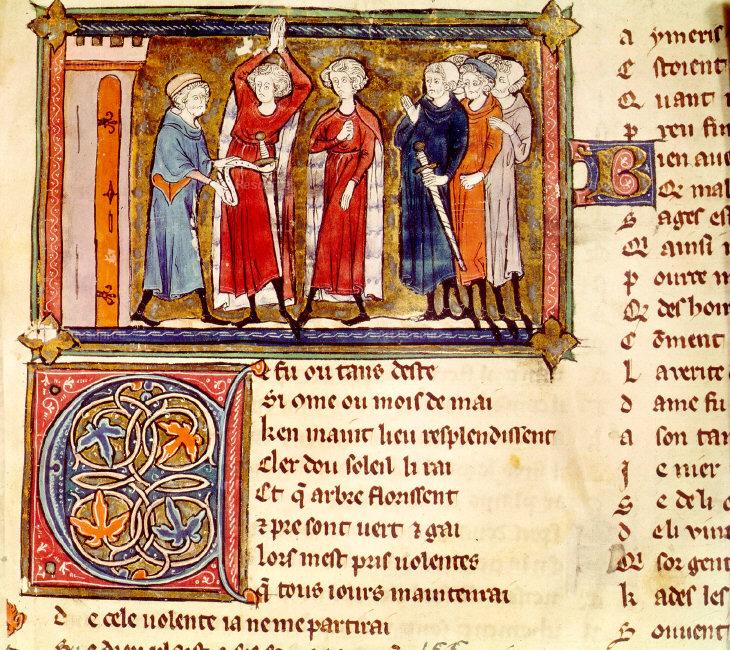 Ce fu ou tans deste
Si ome ou mois de mai
ken maint lieu resplendissent
Cler dou soleil li rai
Et q̃ arbre florissent
⁊ pre sont uert ⁊ gai
lors mest pris uolentes
q̃ tous iours maintenrai
D e cele uolente ia ne me partirai
a ymeris
E stoient
Q uant
p reu fu
Bien aue
Q mal
S ages es
Q ainsi
P oure
Q des hom
C õment
L auerite
d ame fu
a son tan
J e uier
S e de li
d eli
Q sor gent
k ades les
S ouuent